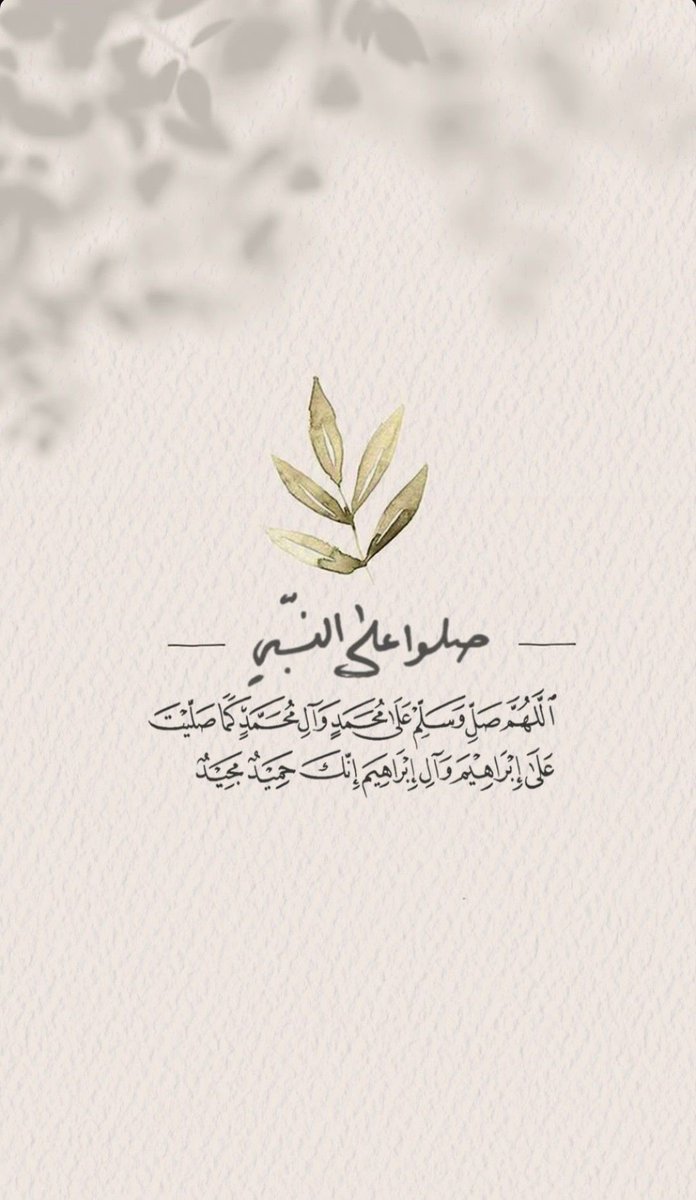 صلوا على النبي
ٱللَّهُمَّ صَلِّ وَسَلِّمْ عَلَىٰ مُحَمَّدٍ وَآلِ مُحَمَّدٍ كَمَا صَلَّيْتَ
عَلَىٰ إِبْرَاهِيْمَ وَآلِ إِبْرَاهِيمَ إِنَّكَ حَمِيْدٌ مَجِيْدٌ